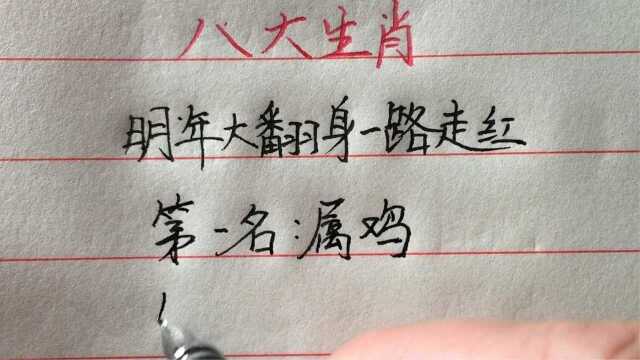 八大生肖
明年大翻身一路走红
第一名:属鸡